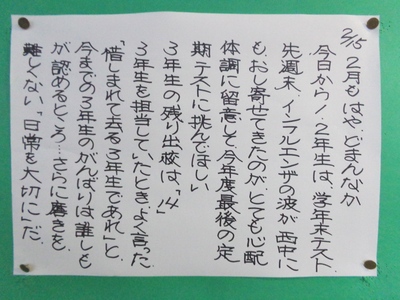 2/15
2月もはや、どまんなか
今日から1、2年生は、学年末テスト
先週末、インフルエンザの波が西中に
も、おし寄せてきたのが、とても心配
体調に留意して今年度最後の定
期テストに挑んでほしい
3年生の残り出校は、「14」
3年生を担当していたときよく言った
「惜しまれて去る3年生であれ」と、
今までの3年生のがんばりは誰しも
が認めるところ…さらに磨きを、
難しくない「日常を大切に」だ